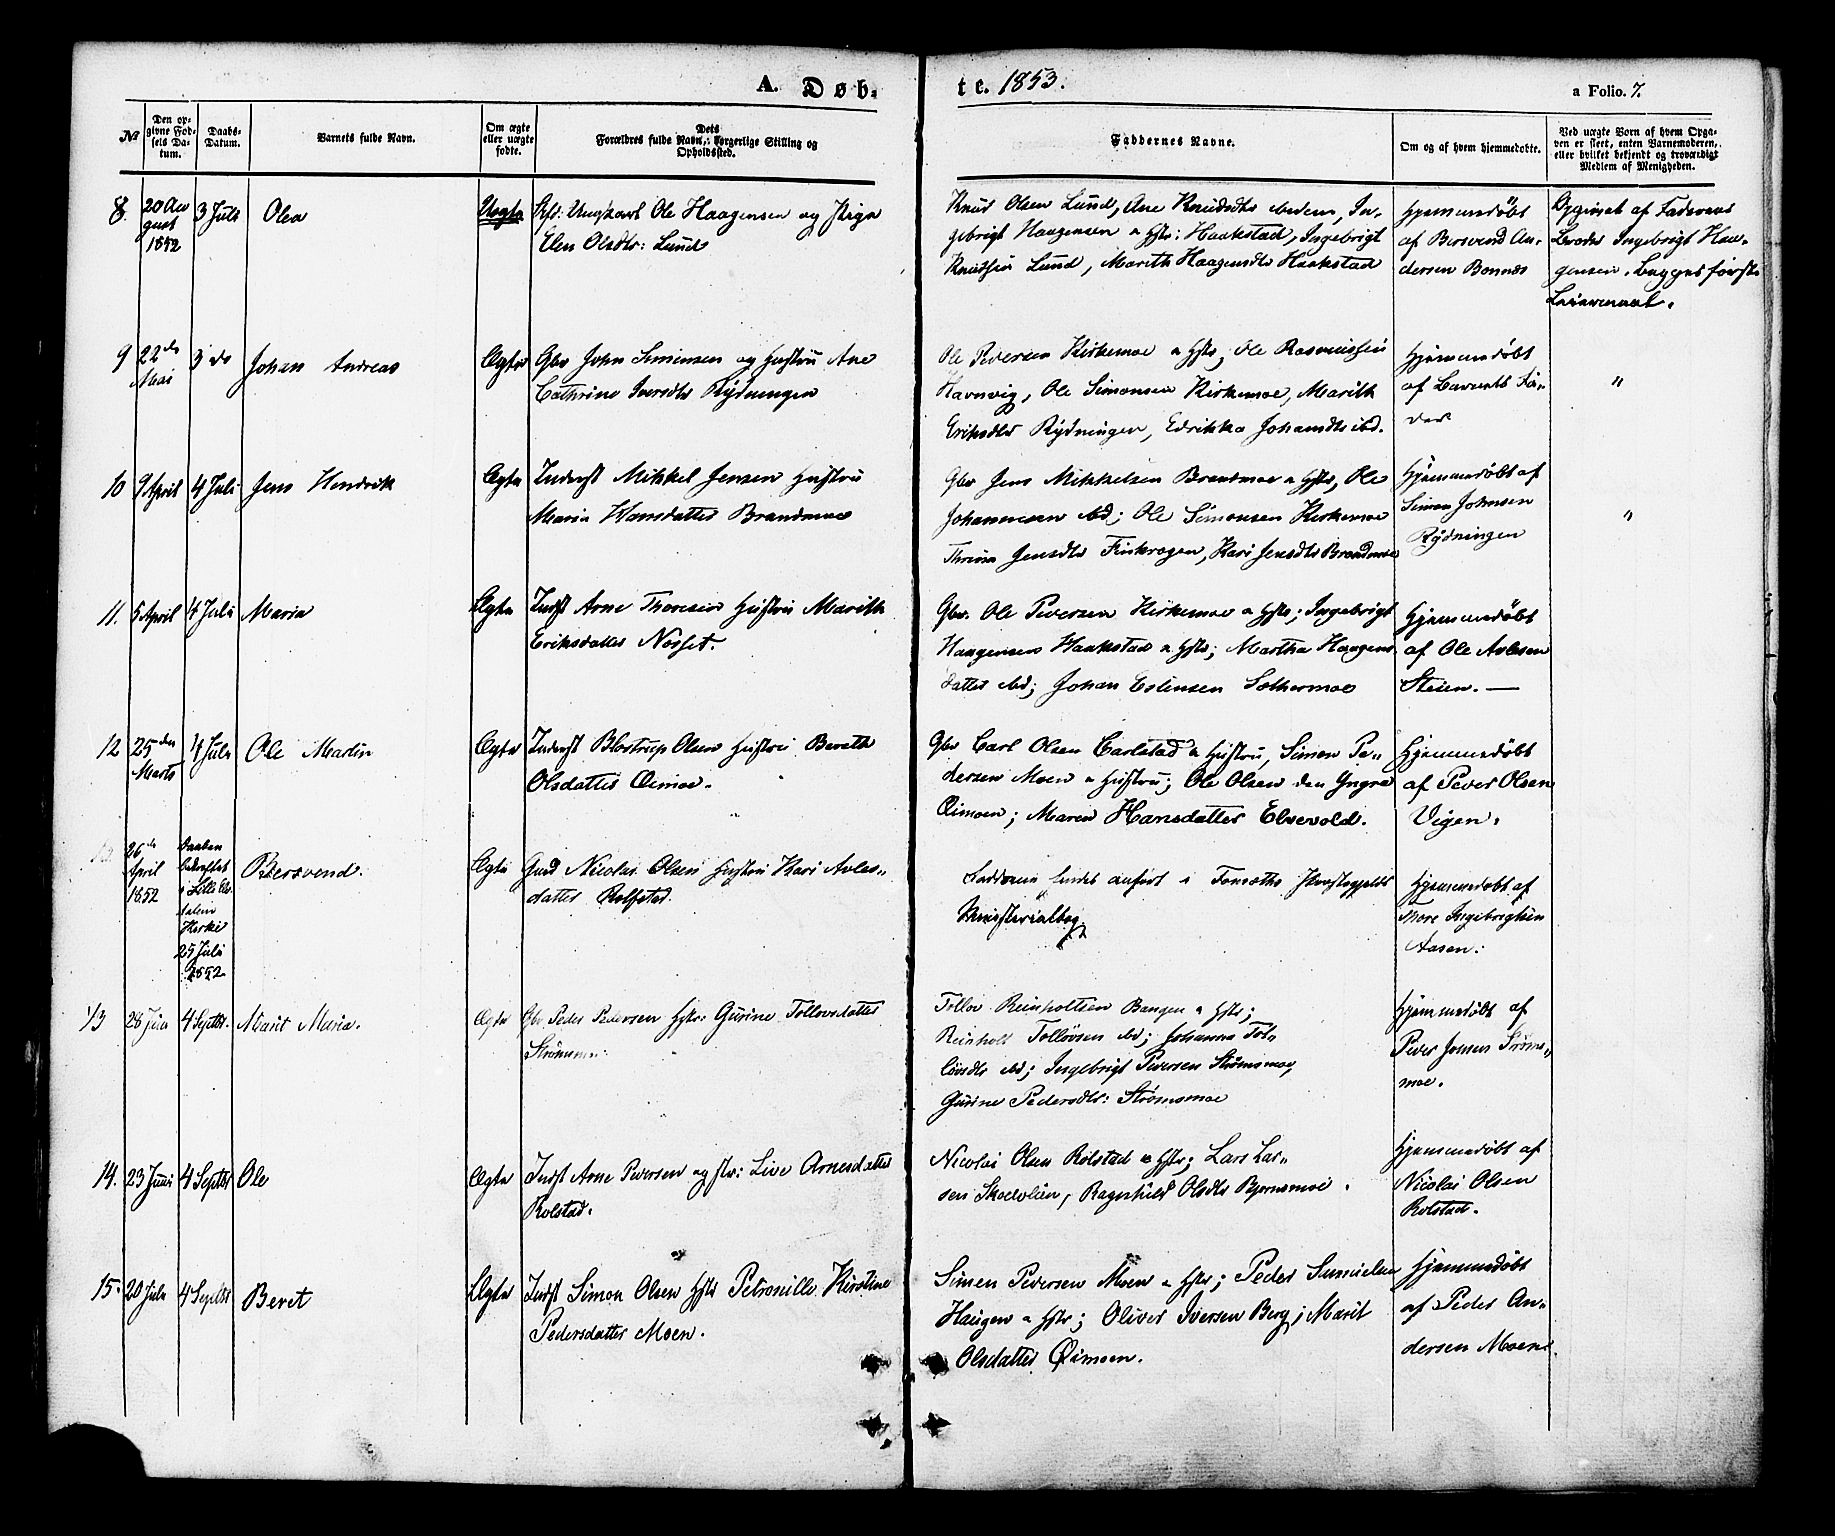 A. Døb-
te. 1853.
a Folio. 7.
No
Den op-
givne Fød-
sels Da-
tum.
Daabs-
Datum.
Barnets fulde Navn.
Om ægte
eller uægte
fødte.
Dets
Forældres fulde Navn, borgerlige Stilling og
Opholdssted.
Faddernes Navne.
Om og af hvem hjemmedøbte.
Ved uægte Børn af hvem Opga-
ven er skeet, enten Barnemoderen,
eller hvilket bekjendt og troværdigt
Medlem af Menigheden.
8.
20 Au
gust
1852
3 Juli
Olea
Uægte
Ungkarl Ole Haagensen og Pige
Elen Olsdtr: Lund
Knud Olsen Lund, Ane Knudsdtr ibidem, In-
gebrigt Haagensen & Hstr: Haakstad, Ingebrigt
Knudsen Lund, Marith Haagensdtr Haakstad
Hjemmedøbt
af Bersvend An-
dersen Bonnæs
Opgivet af Faderens
Broder Ingebrigt Haa-
gensen. Begges første
Leiermaal.
9
22de
Mai
3 do
Johan Andreas
Ægte
Gbr John Simensen og Hustru Ane
Cathrine Iversdtr Rydningen
Ole Pedersen Kirkemoe & Hstr; Ole Rasmussen
Havnvig, Ole Simonsen Kirkemoe, Marith
Eriksdtr Rydningen, Edrikka Johansdtr ibd.
Hjemmedøbt
af Barnets Fa-
der
"
10
9 April
4 Juli
Jens Hendrik
Ægte
Inderst Mikkel Jensen Hustru
Maria Hansdatter Brandmoe
Gbr Jens Mikkelsen Brandmoe & Hstr, Ole
Johannesen ibd; Ole Simonsen Kirkemoe
Jensdtr Finkrogen, Kari Jensdtr Brandmoe
Hjemmedøbt af
Simon Johnsen
Rydningen
"
11.
5 April
4 Juli
Maria
Ægte
Indst Arne Thoresen Hustru Marith
Eriksdatter Nosset.
Gbr. Ole Pedersen Kirkemoe & Hstr; Ingebrigt
Haagensen Haakstad & Hstr; Martha Haagens
datter ibd; Johan Estensen Sothermoe
Hjemmedøbt
af Ole Avlesen
Steien. —
12
25den
Marts
4 Juli
Ole Martin
Ægte
Inderst Blostrup Olsen Hustru Bereth
Olsdatter Øimoe.
Gbr Carl Olsen Carlstad & Hustru, Simon Pe-
dersen Moen & Hustru; Ole Olsen den Yngre
Øimoen; Maren Hansdatter Elvevold.
Hjemmedøbt
af Peder Olsen
Vigen.
26de
April
1852
Daaben
bekræftet
i Lille
Kirke
25 Juli
1852
Bersvend.
Ægte
Gmd Nicolai Olsen Hustru Kari Avles-
datter Rolfstad.
Fadderne findes anført i Tomsøths Præstegjelds
Ministerialbog.
Hjemmedøbt af
Thore Ingebrigtsen
Aasen.
13
28 Juni
4 Septbr.
Marit Maria.
Ægte
Gbr Peder Pedersen Hstr: Gurine Tollovsdatter
Tollov Reinholtsen Bangen & Hstr;
Reinholt Tollovsen ibd; Johanna Tol-
lovsdtr ibd; Ingebrigt Pedersen Strømsmoe,
Gurine Pedersdtr: Strømsmoe
Hjemmedøbt af
Peder Jonsen Strøms-
moe.
14.
23 Juni
4 Septbr
Ole
Ægte
Indst Arne Pedersen og Hstr: Live Arnesdatter
Rolstad.
Nicolai Olsen Rolstad & Hstr; Lars Lar-
sen Skoelvlien, Ragnhild Olsdtr Bjørnsmoe.
Hjemmedøbt af
Nicolai Olsen
Rolstad.
15.
20 Juli
4 Septbr
Beret
Ægte
Indst Simon Olsen Hstr Petronille Kirstine
Pedersdatter Moen.
Simen Pedersen Moen & Hstr; Peder Samuelsen
Haugen & Hstr; Oliver Iversen Berg; Marit
Olsdatter Øimoen.
Hjemmedøbt
af Peder An-
dersen Moen.